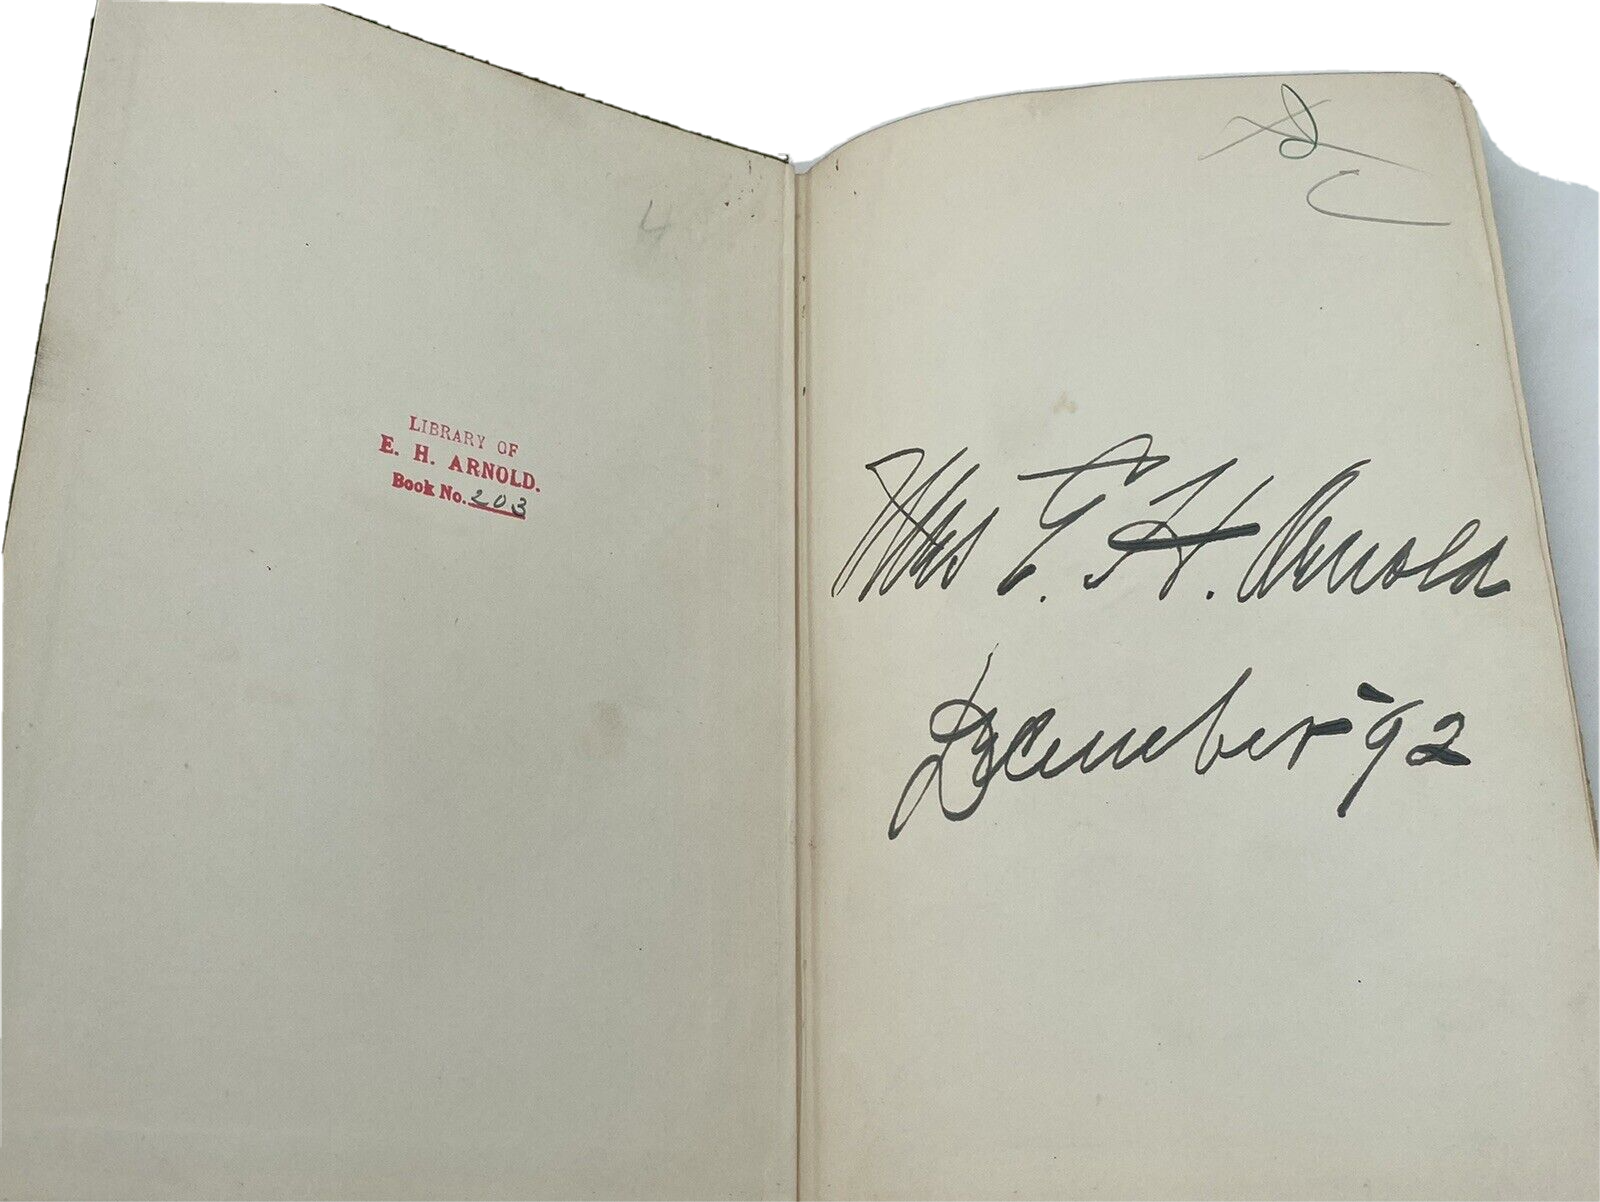 LIBRARY OF
E. H. ARNOLD.
Book No. 203
Mrs E. H. Arnold
December '92